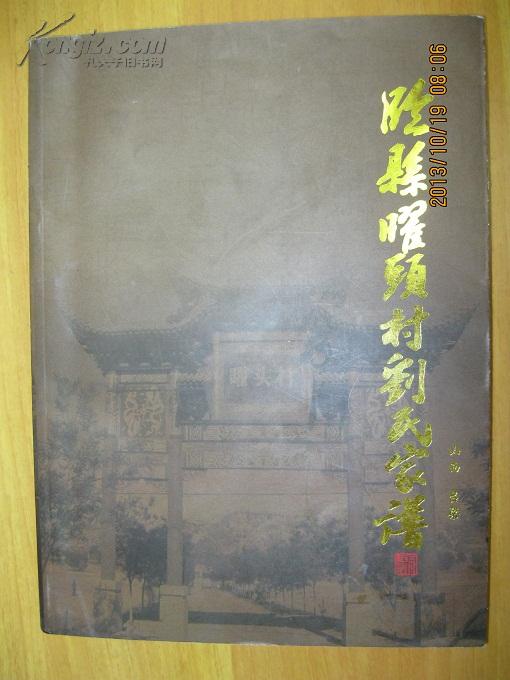 Kongfz.com
孔夫子旧书网
2013/10/19 08:06
臨縣曜頭村劉氏家譜
山西
曜头村